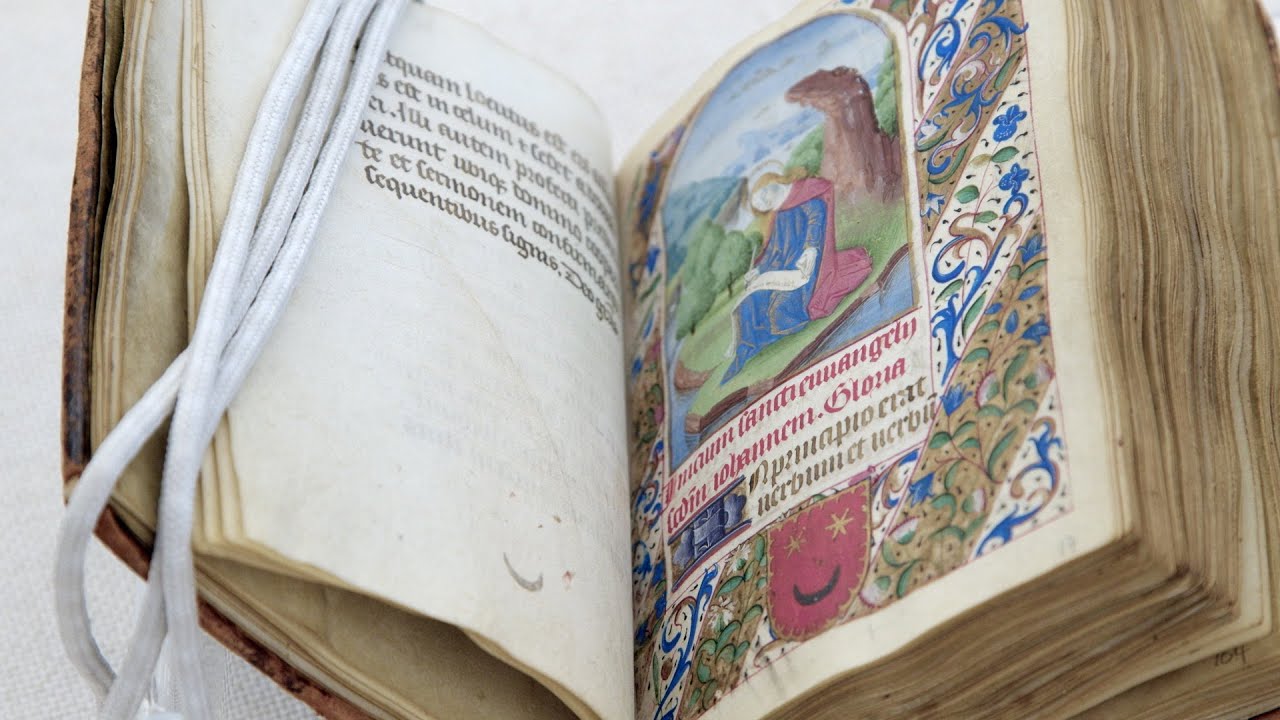 quam locutus est
s est in celum & sedet a
Illi autem profecti
uerunt ubiq; domino
te et sermonem confirma
sequentibus signis, Deo
Inicium sancti euuangely
secdm iohannem. Gloria
N principio erat
uerbum et uerbū
104